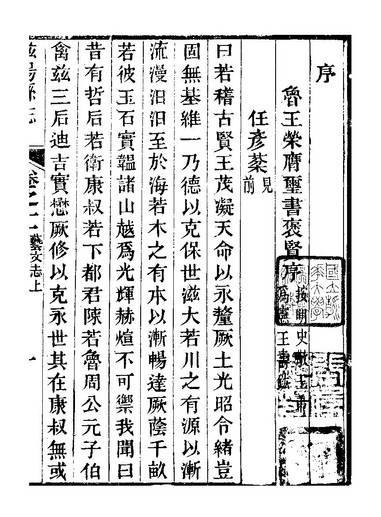 序
魯王榮膺璽書褒賢序
按明史
任彥棻見前
曰若稽古賢王茂凝天命以永釐厥土光昭令緒豈
固無基維一乃德以克保世滋大若川之有源以漸
流漫汩汩至於海若木之有本以漸暢達厥蔭千畝
若彼玉石實韞諸山越為光輝赫煊不可禦我聞曰
昔有哲后若衛康叔若下都君陳若魯周公元子伯
禽茲三后迪吉實懋厥修以克永世其在康叔無或
卷之十
藝文志上
一